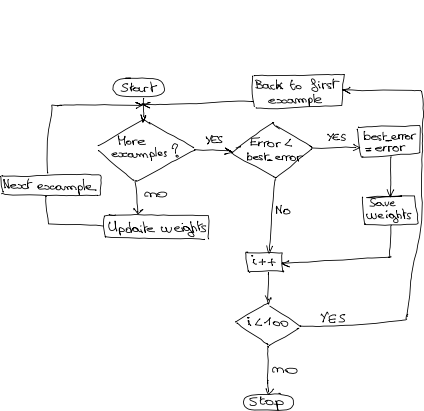 Start
Back to first
example
More
examples?
YES
Error <
best_error
YES
best_error
= error
Next example
no
Update weights
No
Save
weights
i++
i<100
YES
no
Stop